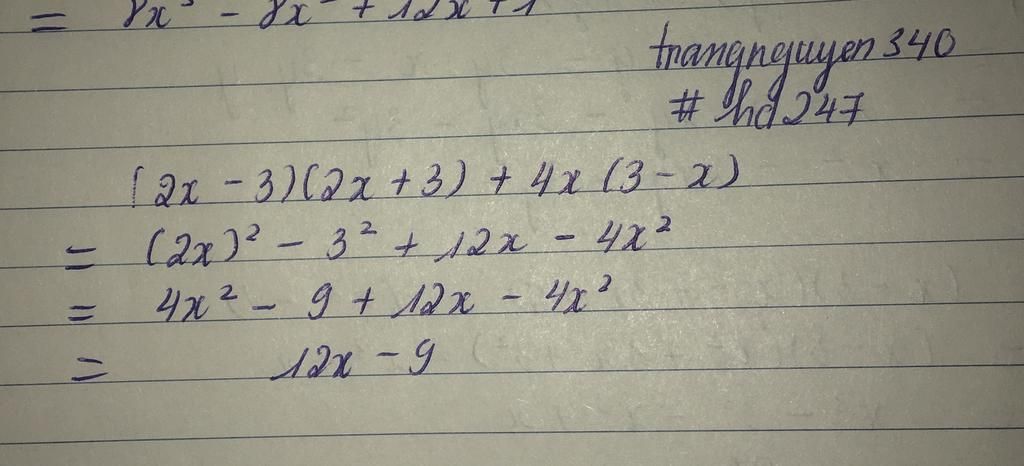 = 8x³ - 8x³ + 12x + 1
trangnguyen 340
# hd 247
(2x - 3)(2x + 3) + 4x (3 - x)
= (2x)² - 3² + 12x - 4x²
= 4x² - 9 + 12x - 4x²
= 12x - 9